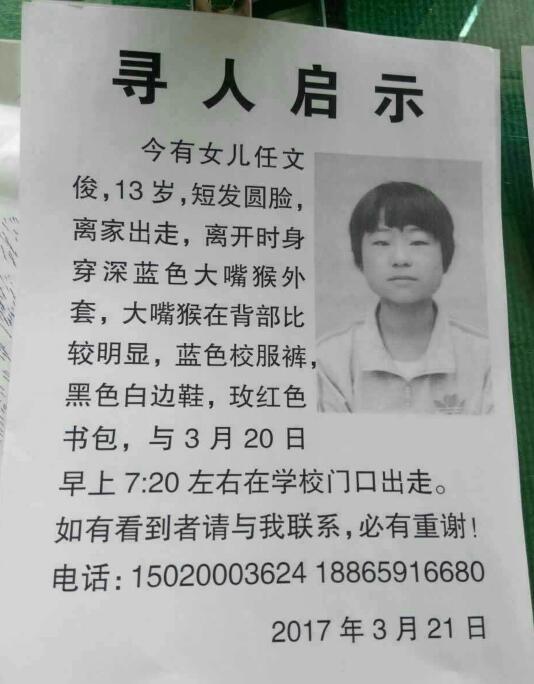 寻人启示
今有女儿任文
俊，13岁，短发圆脸，
离家出走，离开时身
穿深蓝色大嘴猴外
套，大嘴猴在背部比
较明显，蓝色校服裤，
黑色白边鞋，玫红色
书包，与3月20日
早上7:20左右在学校门口出走。
如有看到者请与我联系，必有重谢！
电话：15020003624 18865916680
2017年3月21日